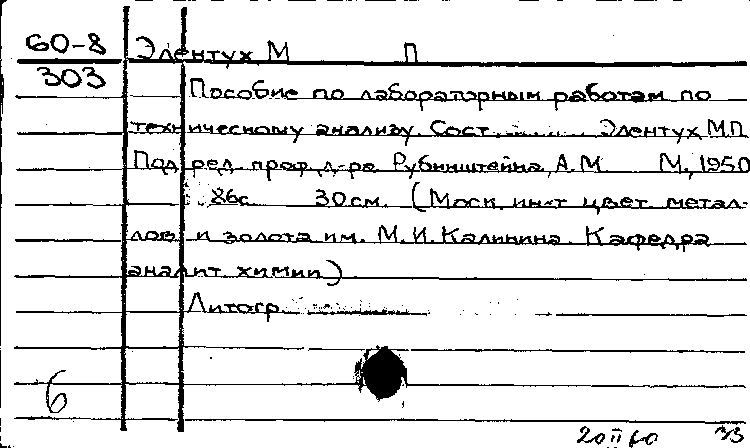 60-8 Элентух М П
303 Пособие по лабораторным работам по
техническому анализу. Сост. Элентух М.П.
Под ред. проф. д-ра Рубинштейна, А.М. М., 1950
86с. 30см. (Моск. ин-т цвет. метал-
лов и золота им. М.И. Калинина. Кафедра
аналит. химии)
Литогр.
6
20 II 60 33